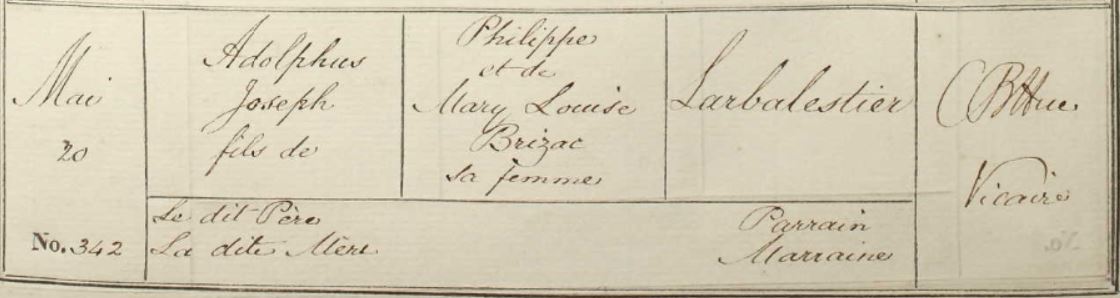 Mai
20
No. 342
Adolphus
Joseph
fils de
Philippe
et de
Mary Louise
Brizac
sa femme
Larbalestier
Vicaire
Le dit Père Parrain
La dite Mère Marraine